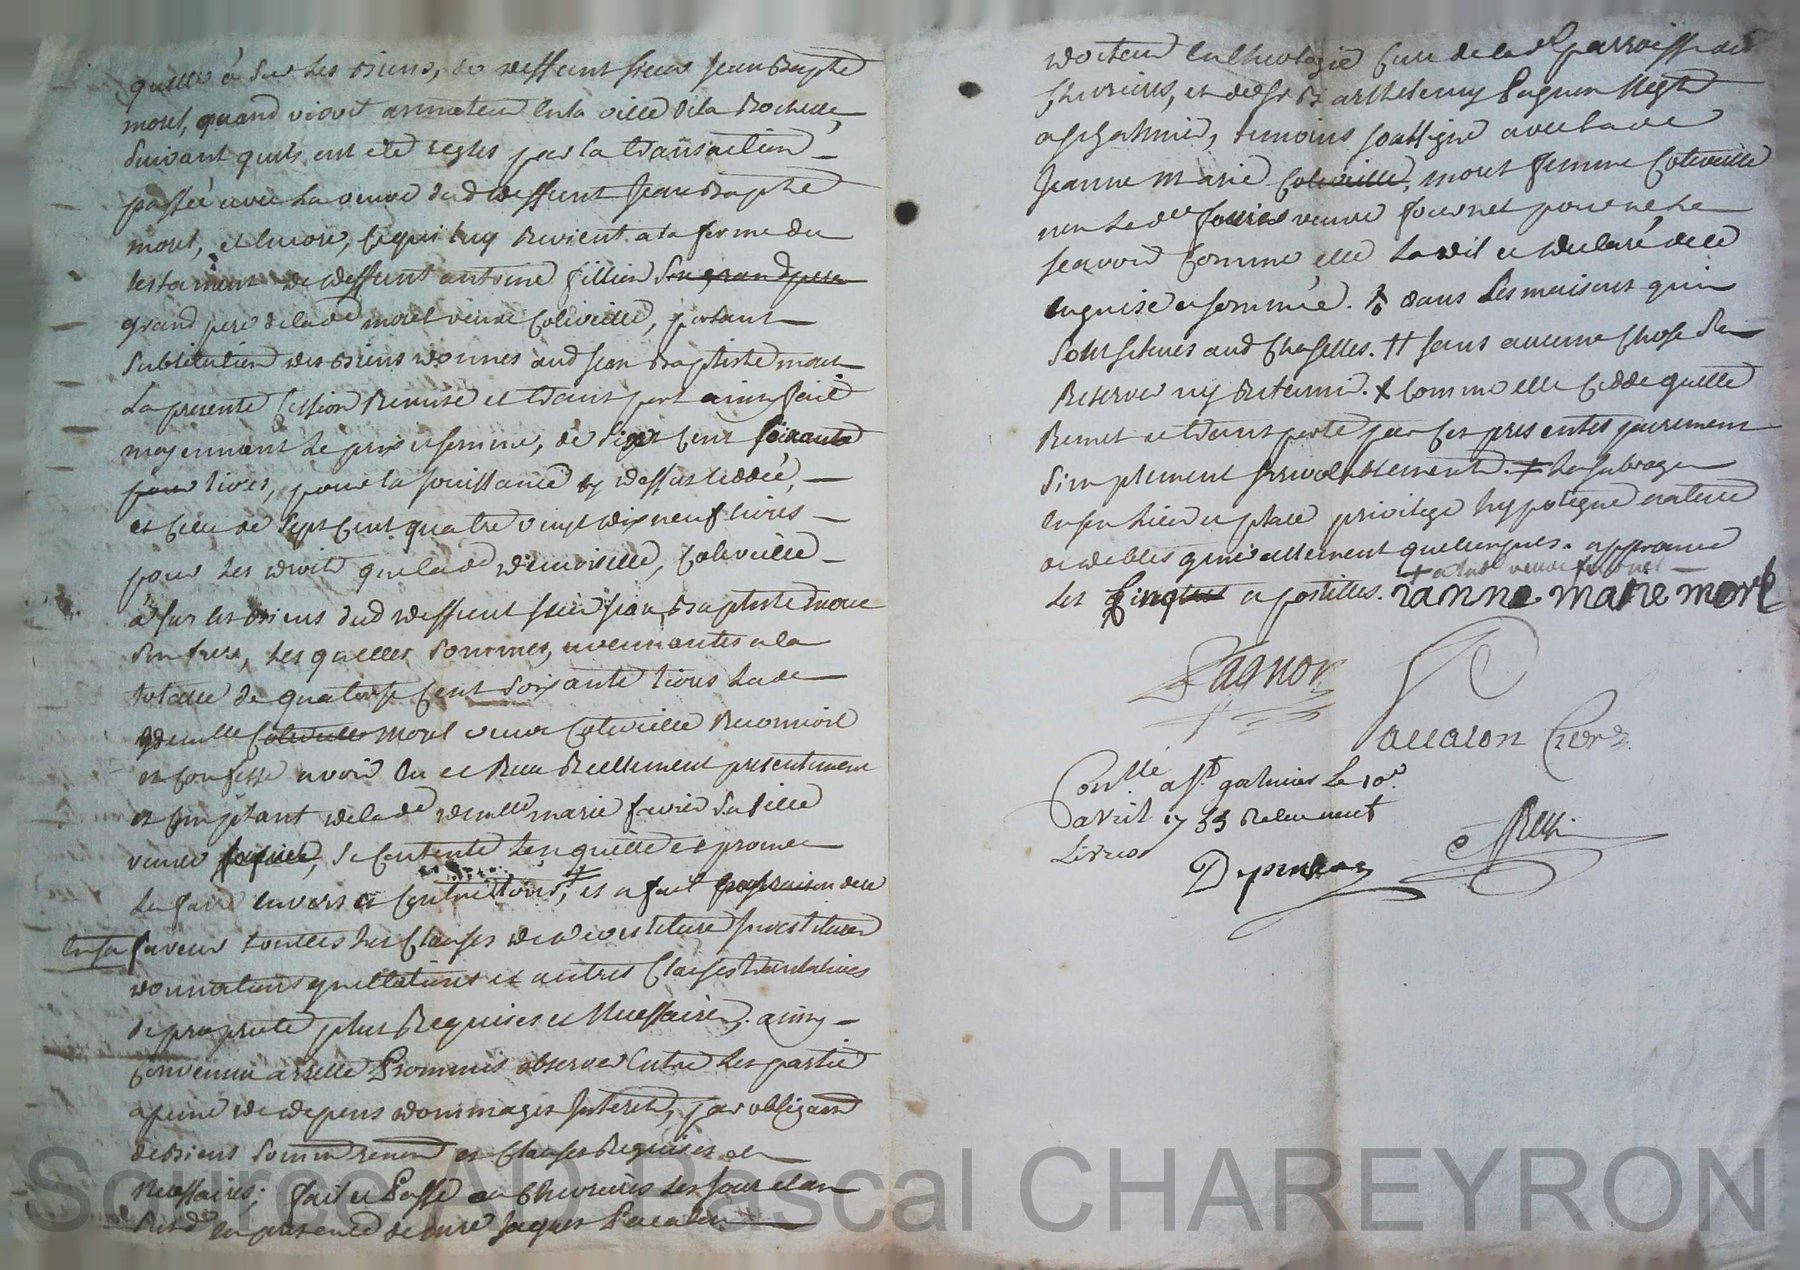 quelle a sur les biens, du deffunt sieur Jean Baptte
morel, quand vivoit armateur en la ville de la Rochelle,
suivant quils ont eté reglés par la transaction
passée avec la veuve dud deffunt Jean Baptte
morel, et encore, ce qui luy Revient a la forme du
testament de deffunt antoine fillion son grand pere
grand pere de lade morel veuve Coleveille, portant
substitution des biens donnes aud Jean Baptiste morel
La presente Cession Remise et transport ainsy fait
moyennant le prix et somme, de six cent soixante
livres, pour la jouissance cy dessus ceddée,
et celle de sept cent quatre vingt dix neuf livres
pour les droits que lade demoiselle, Coleveille
a sur les biens dud deffunt sieur Jean Baptiste morel
son frere, les quelles sommes, revenantes a la
totalle de quatorse cent soixante livres lade
demlle Coleveille morel veuve Coleveille Reconnoit
et confesse avoir eu et Receu Reellement presentement
et comptant de lade demlle marie favier sa fille
veuve, se contente len quitte et promet
Len faire envers et contre tous, et a fait
en sa faveur touttes les Clauses de devestiture investiture
donnations quittations et autres Clauses translatives
de propriete plus Requises et Necessaires, ainsy
convenu a esté Promis observer entre les partie
a peine de depens dommages interets, par obligaon
de biens soumon renonon et clauses Requises et
necessaires. fait et Passé au Chevrieres les jour et an
susd en presence de mre Jaques Pacalon
docteur en theologie Curé de lad parroisse de
Chevrieres, et de sr Barthelemy Pagnon Negt
a st galmier, temoins soussigné avec lade
Jeanne Marie Coleveille, morel femme Coleveille
non lade veuve fournel pour ne le
scavoir comme elle la dit et declaré de ce
enquise et sommée. dans les maisons qui
sont situes aud Chaselles. # sans aucune chose se
Reserver ny Retenir. x comme elle cedde quitte
Remet et transporte par ces presentes purement
simplement irrevocablement. + la subroger
en son lieu et place privilege hypoteque nature
de debtes generallement quelconques. approuvé
+ a lad veuve fournel
Les Cinq apostilles. ianne marie morel
Pagnon
Pacalon Curé
Conllé a st galmier le 10e
avril 1755 Receu
Livres